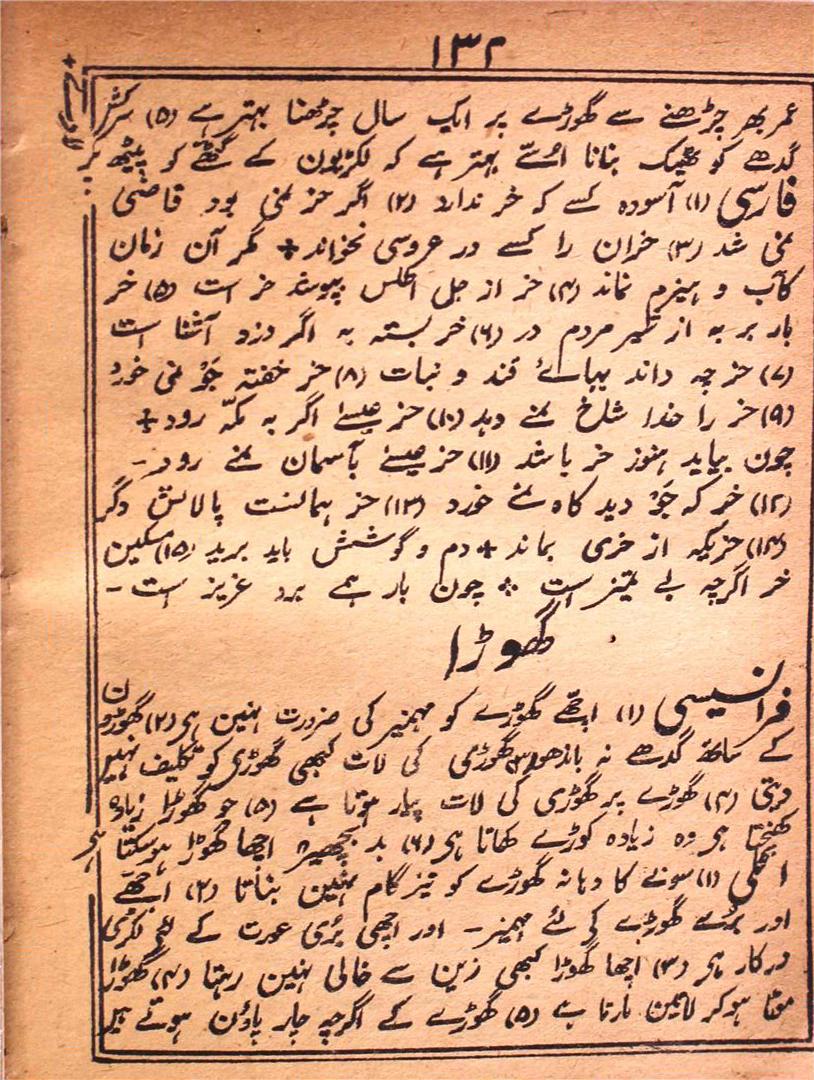 ۱۳۲
عمر بھر چڑھنے سے گھوڑے پر ایک سال چڑھنا بہتر ہے (۵) سرکش
گدھے کو ٹھیک بنانا اسّے بہتر ہے کہ لکڑیون کے گٹھے کو پیٹھ پر
فارسی (۱) آسودہ کسے کہ خر ندارد (۲) اگر خر نمی بود قاضی
نمی شد (۳) خران را کسے در عروسی نخواند + مگر آن زمان
کآب و ہیزم نماند (۴) خر از جل اطلس پپوشد خر است (۵) خر
بار بر بہ از شیر مردم در (۶) خر بستہ بہ اگر دزد آشنا است
(۷) خر چہ داند بہاے قند و نبات (۸) خر خفتہ جَو نمی خورد
(۹) خر را خدا شاخ نمے دہد (۱۰) خر عیسےٰ اگر بہ مکّہ رود +
چون بیاید ہنوز خر باشد (۱۱) خر عیسےٰ بآسمان نمے رود -
(۱۲) خر کہ جَو دید کاہ نمے خورد (۱۳) خر ہمانست پالانش دگر
(۱۴) خریکہ از خری بماند + دم و گوشش باید برید (۱۵) مسکین
خر اگرچہ بے تمیز است + چون بار ہمے برد عزیز است -
گھوڑا
فرانسیسی (۱) اچھے گھوڑے کو مہمیز کی ضرورت نہین ہی (۲) گھوڑون
کے ساتھ گدھے نہ باندھو (۳) گھوڑی کی لات کبھی گھوڑی کو تکلیف نہین
دیتی (۴) گھوڑے پر گھوڑی کی لات پیار ہوتا ہے (۵) جو گھوڑا زیادہ
کھنچتا ہی وہ زیادہ کوڑے کھاتا ہی (۶) بد بچھیرا اچھا گھوڑا ہوسکتا ہی
(۱) سونے کا دہانہ گھوڑے کو تیز گام نہین بناتا (۲) اچھے
اور بُرے گھوڑے کے لئے مہمیز - اور اچھی بُری عورت کے لئے لکڑی
درکار ہی (۳) اچھا گھوڑا کبھی زین سے خالی نہین رہتا (۴) گھوڑا
موٹا ہوکر لاتین مارتا ہے (۵) گھوڑے کے اگرچہ چار پاؤن ہوتے ہین